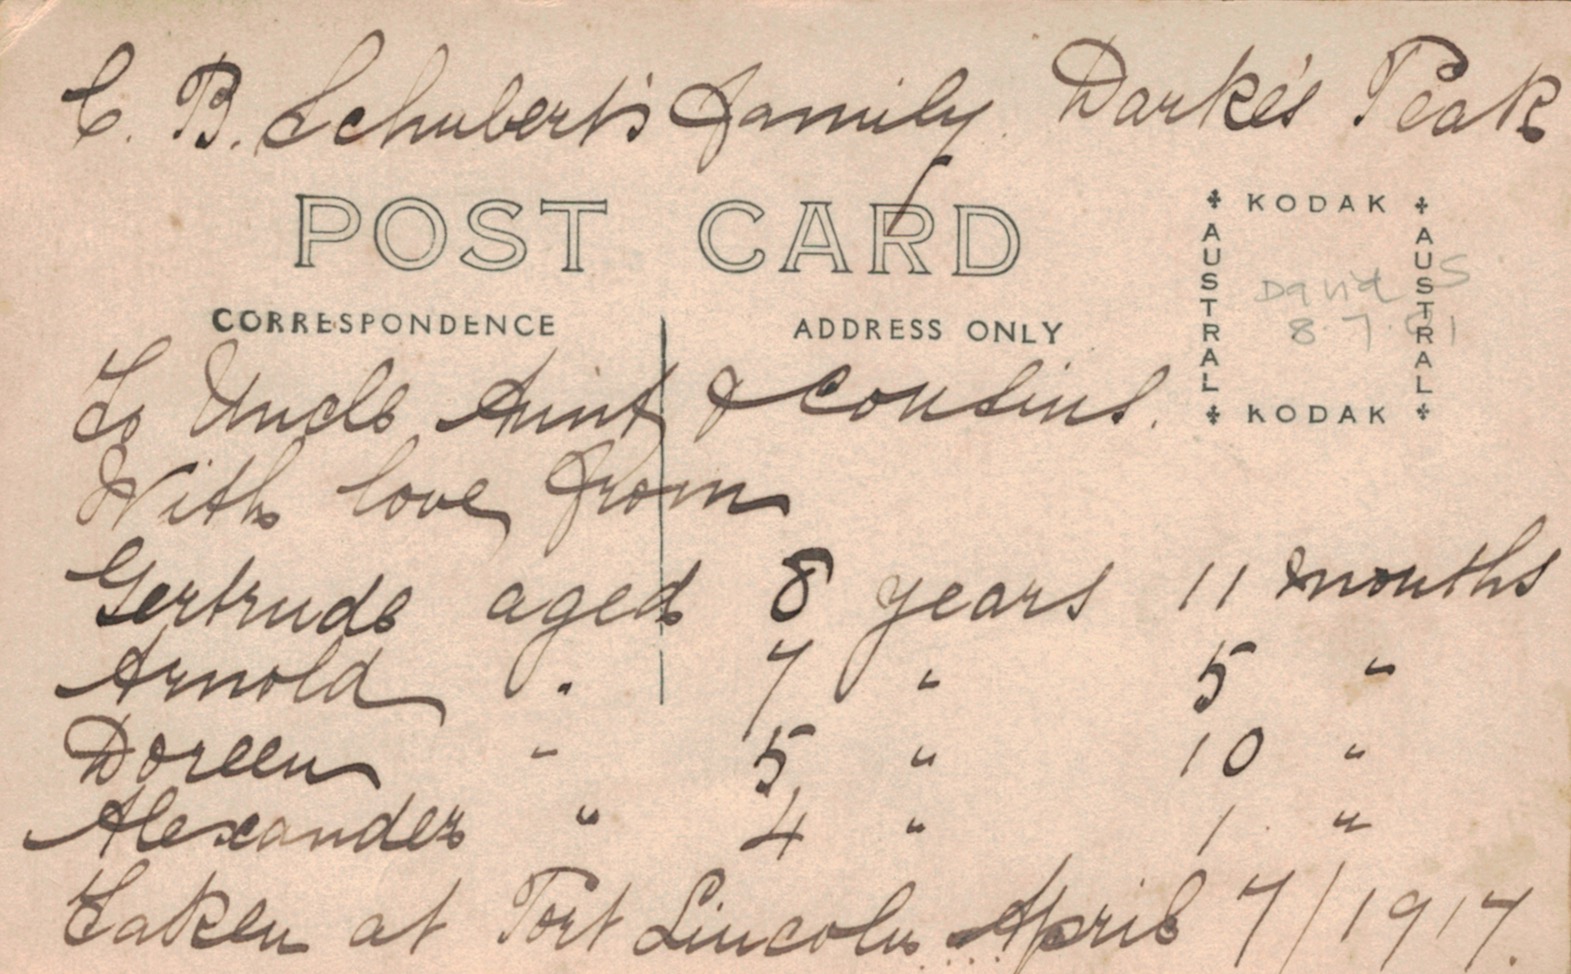 C. B. Schubert's family. Darke's Peak
POST CARD
KODAK
AUSTRAL
AUSTRAL
KODAK
David S
8.7.
CORRESPONDENCE
ADDRESS ONLY
To Uncle Aunt & Cousins.
With love from
Gertrude aged 8 years 11 months
Arnold " 7 " 5 "
Doreen " 5 " 10 "
Alexander " 4 " 1 "
Taken at Port Lincoln April 7/1917.